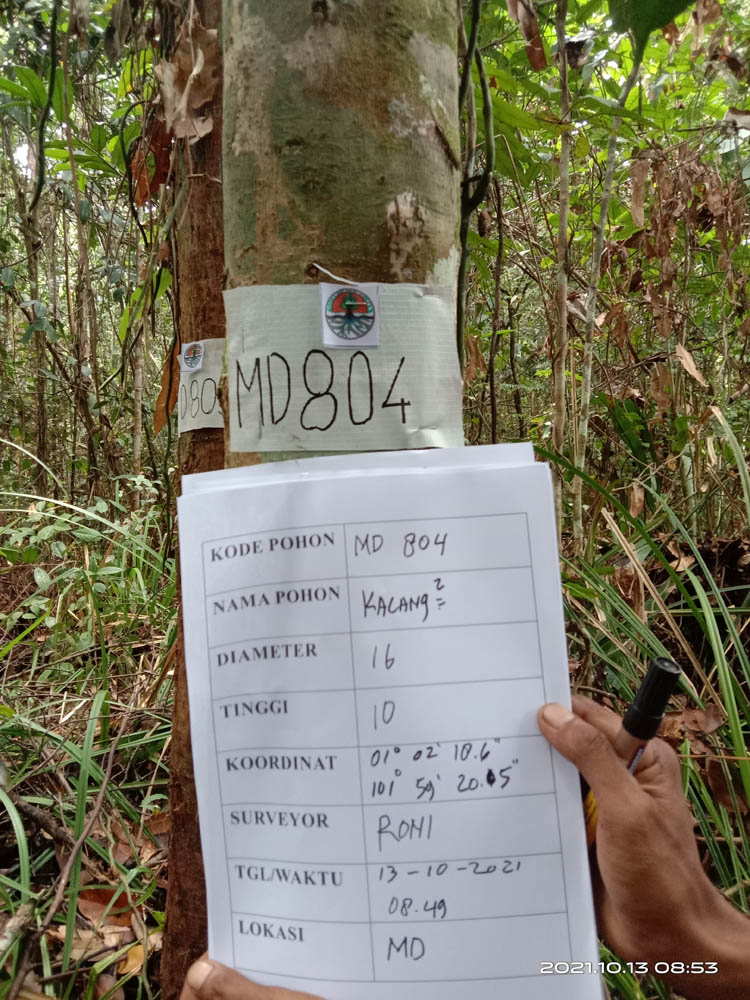 MD804
D80
KODE POHON MD 804
NAMA POHON KALANG²
DIAMETER 16
TINGGI 10
KOORDINAT 01° 02' 18.6"
101° 59' 20.5"
SURVEYOR RONI
TGL/WAKTU 13-10-2021
08.49
LOKASI MD
2021.10.13 08:53